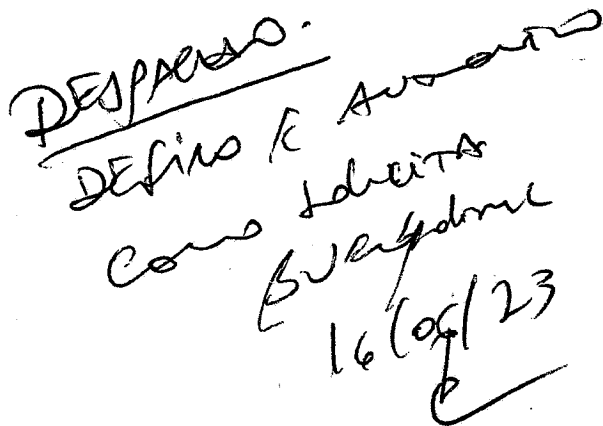 DESPACHO.
DEFIRO E AUTORIZO
COMO SOLICITA
16/06/23